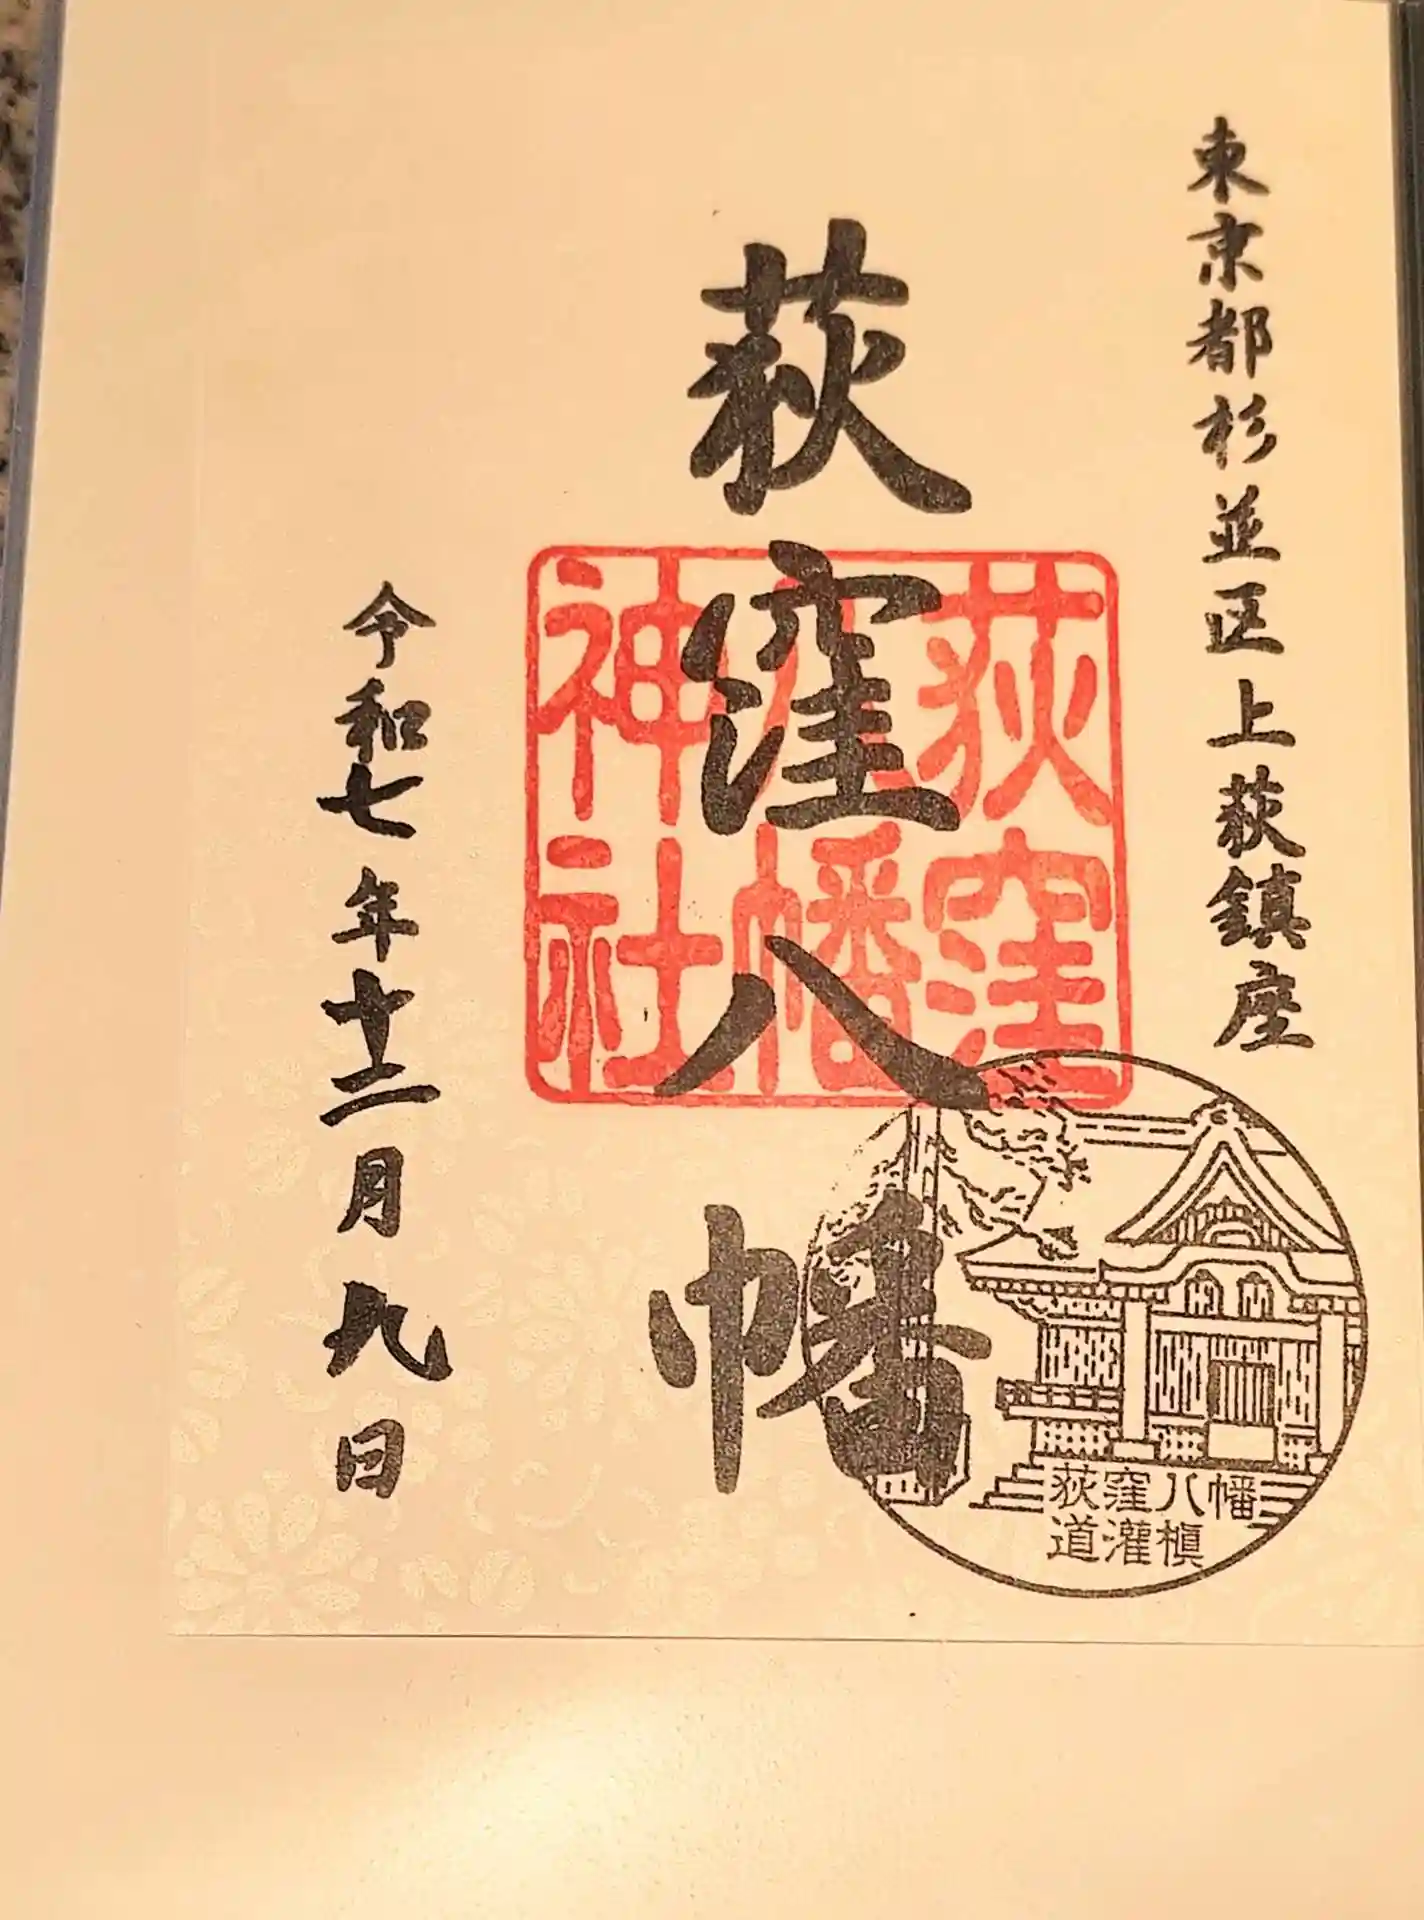 東京都杉並区上荻鎮座
荻窪八幡
荻窪
八幡
神社
令和七年十二月九日
荻窪八幡
道灌槇